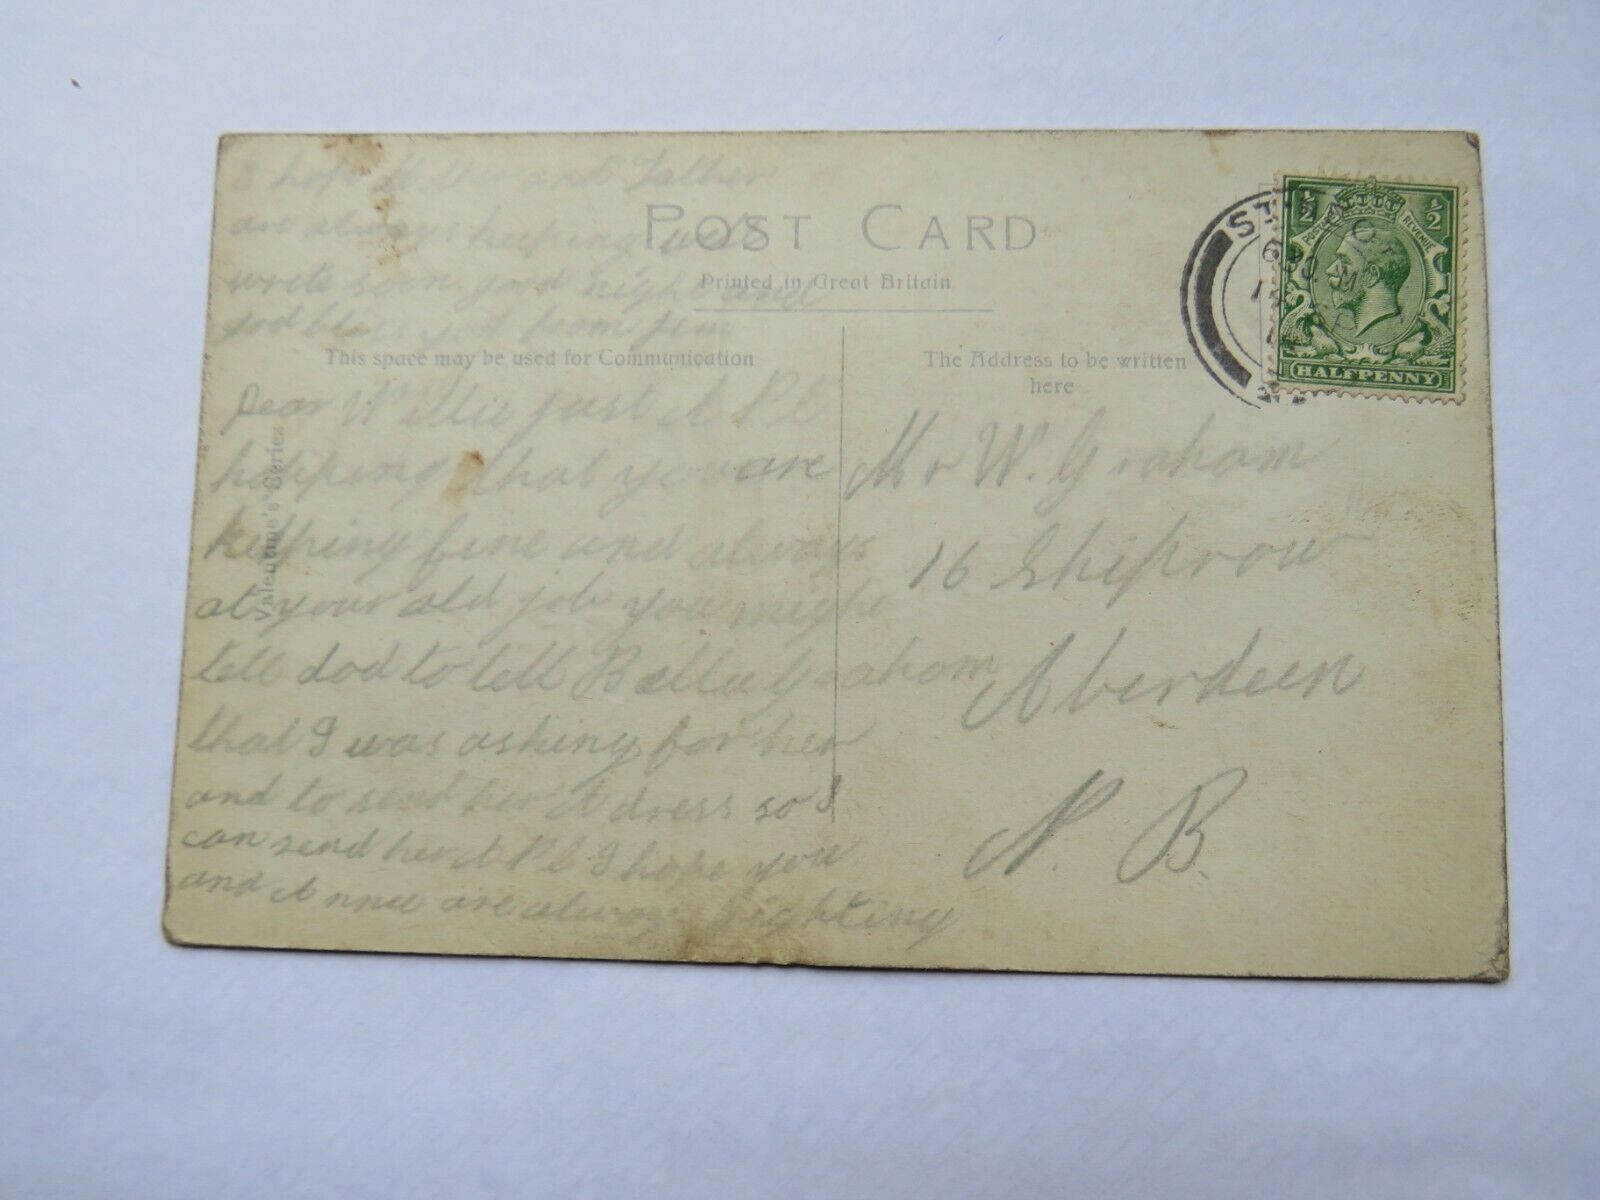 I hope Mother and Father
are always keeping well
write soon good night and
god bless you from Jim
POST CARD
Printed in Great Britain
This space may be used for Communication
The Address to be written
here
Valentine's Series
Dear Willie just A P.C
hopping that you are
keeping fine and always
at your old job you might
tell dod to tell Bella Graham
that I was asking for her
and to send her Adress so I
can send her A P C I hope you
and Annie are always fighting
Mr W. Graham
16 Shiprow
Aberdeen
N. B.
½ ½
POSTAGE REVENUE
HALFPENNY
ST